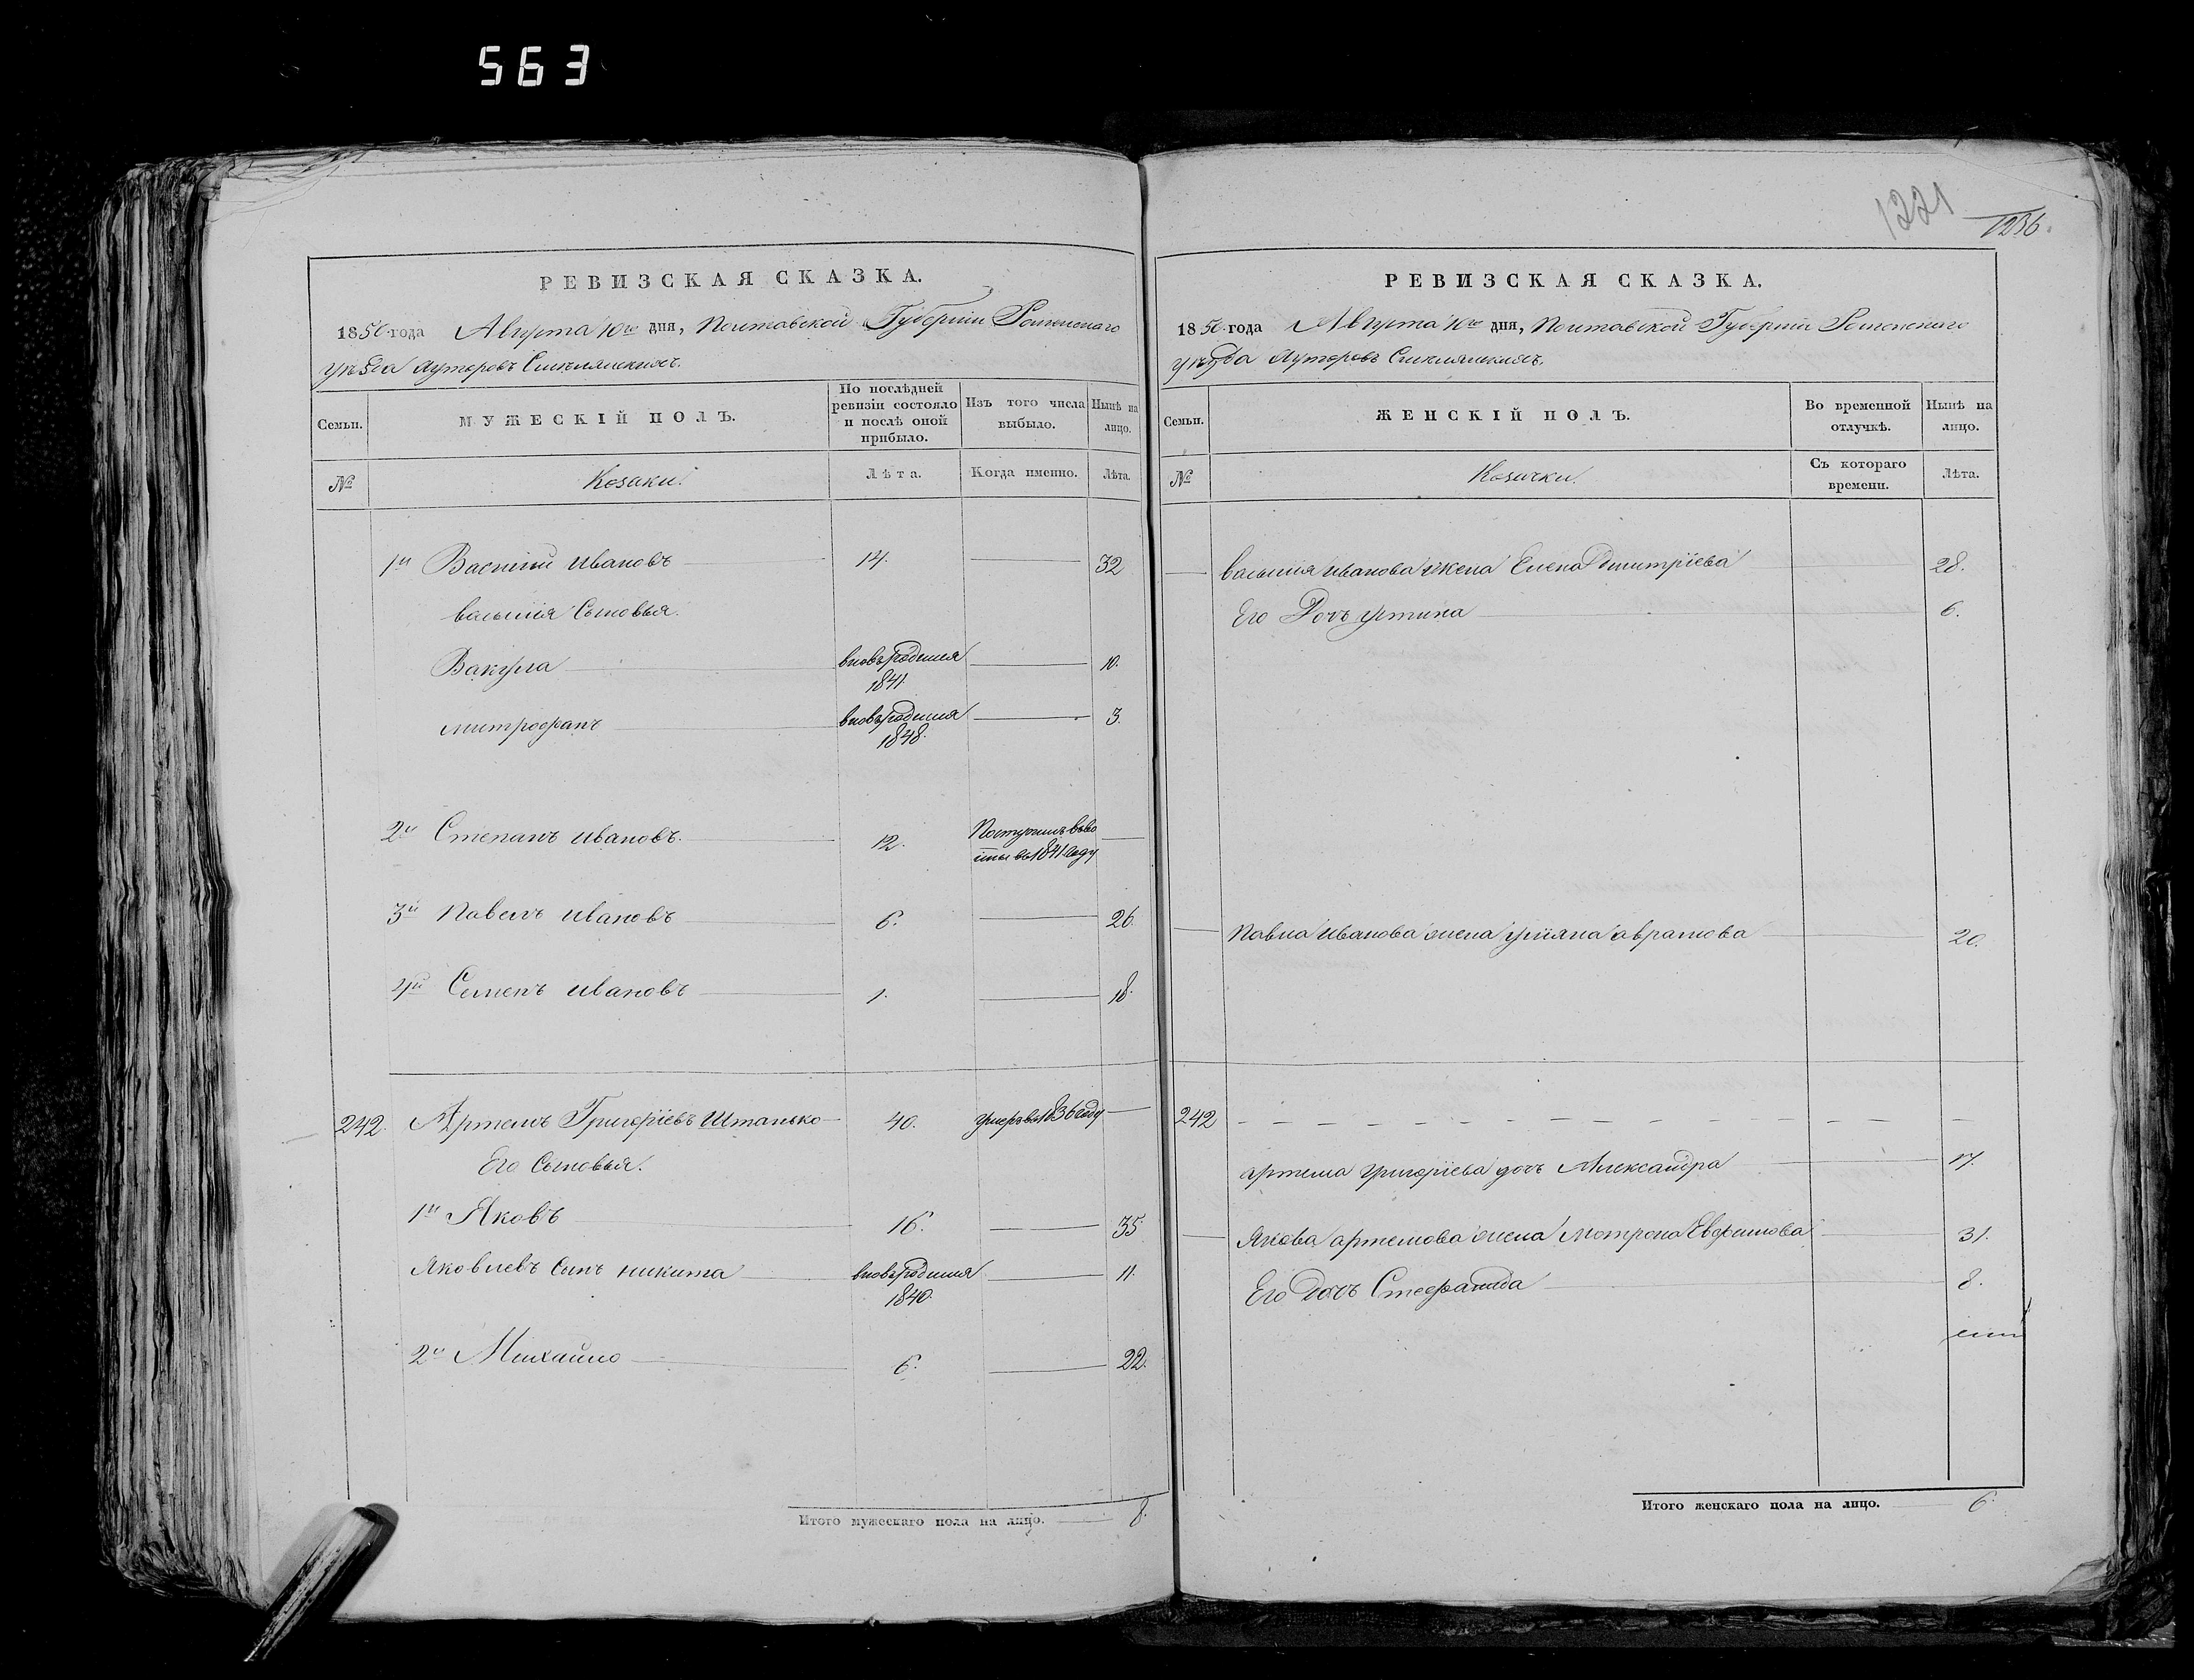 563
1221
1236.
РЕВИЗСКАЯ СКАЗКА.
1850 года Августа 10го дня, Полтавской Губерніи Роменскаго
уѣзда Хуторовъ
Семьи.
МУЖЕСКІЙ ПОЛЪ.
По послѣдней ревизіи состояло и послѣ оной прибыло.
Изъ того числа выбыло.
Нынѣ на лицо.
№
Козаки.
Лѣта.
Когда именно.
Лѣта.
1й Василій Ивановъ 14. 32
василія Сыновья.
Вакула вновь родился 1841 10.
митрофанъ вновь родился 1848. 3.
2й Степанъ ивановъ. 12. въ 1841 году
3й Павелъ ивановъ 6. 26.
4й Семенъ ивановъ 1. 18.
242. Артемъ Григоріевъ Штанько 40. умеръ въ 1836 году
Его Сыновья.
1й Яковъ 16. 35.
Яковлевъ Сынъ никита вновь родился 1840. 11.
2й Михайло 6. 22.
Итого мужескаго пола на лицо. 8.
РЕВИЗСКАЯ СКАЗКА.
1850 года Августа 10го дня, Полтавской Губерніи Роменскаго
уѣзда Хуторовъ
Семьи.
ЖЕНСКІЙ ПОЛЪ.
Во временной отлучкѣ.
Нынѣ на лицо.
№
Козачки.
Съ котораго времени.
Лѣта.
василія иванова жена Елена Дмитріева 28.
Его Дочь устина 6.
Павла иванова жена уліяна абрамова 20.
242
артема григоріева дочь Александра 17.
Якова артемова жена мотрона Евфимова 31.
Его Дочь Стефанида 8.
Итого женскаго пола на лицо. 6.